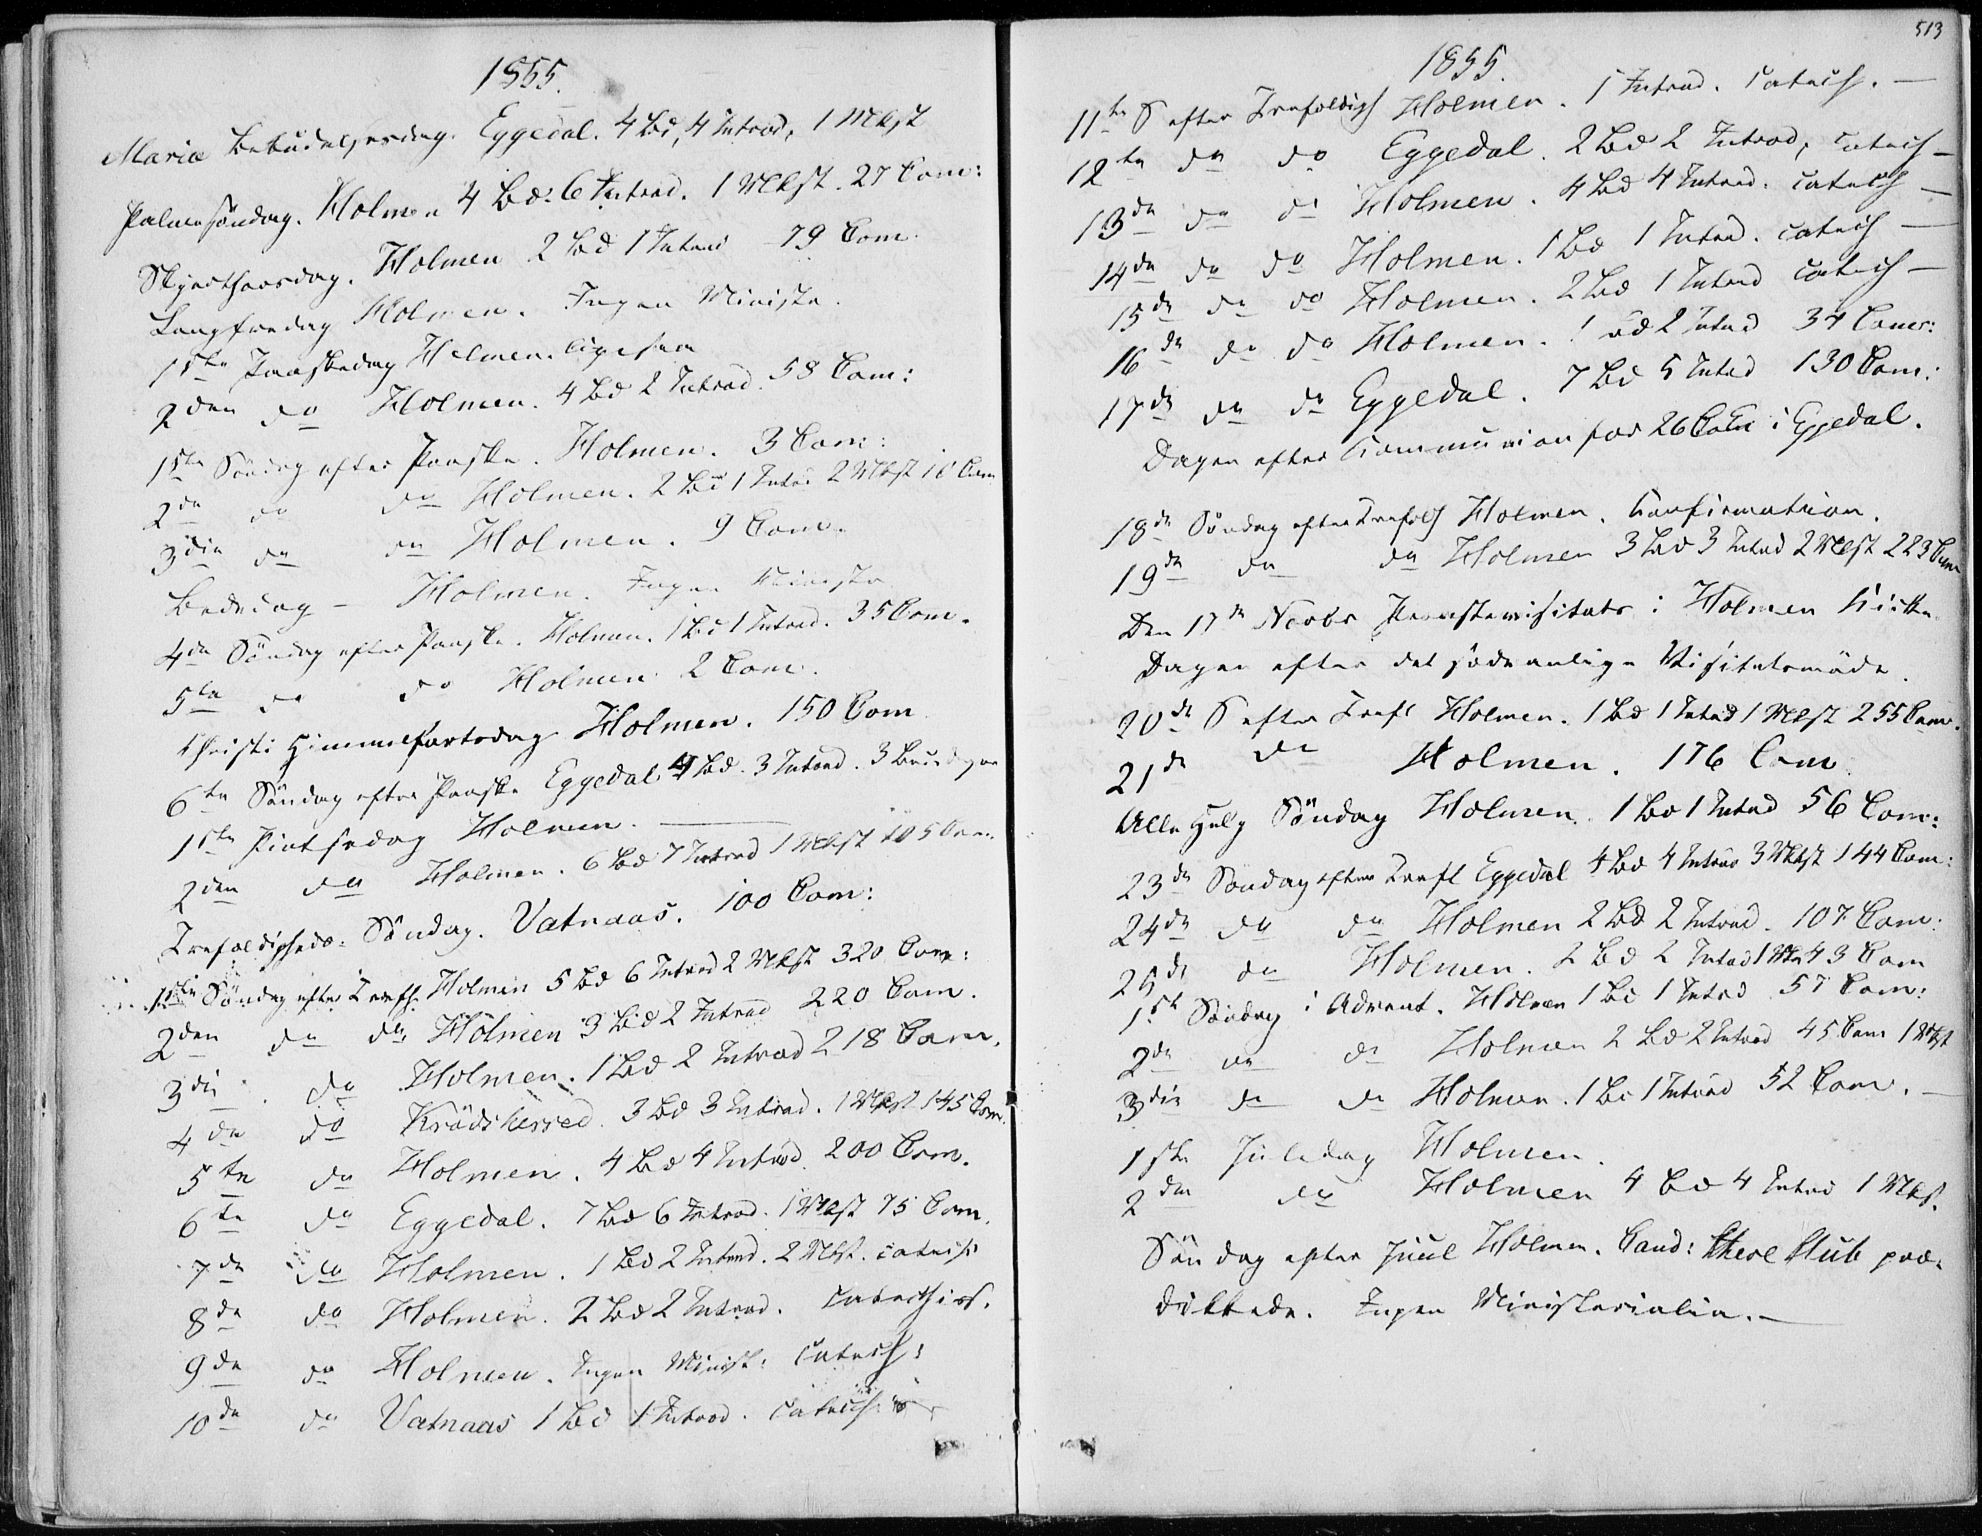 1855.
Mariæ Bebudelsesdag. Eggedal. 4 Bd, 4 Introd, 1 Mkst
Palmesöndag. Holmen 4 Bd: 6 Introd. 1 Mkst. 27 Com:
Skjærthorsdag. Holmen 2 Bd 1 Introd 79 Com.
Langfredag Holmen. Ingen Ministr.
1ste Paaskedag Holmen. ligesaa
2den do Holmen. 4 Bd 2 Introd. 58 Com:
1ste Söndag efter Paaske. Holmen. 3 Com:
2den do do Holmen. 2 Bd 1 Introd 2 Mkst 10 Com
3die do do Holmen. 9 Com.
Bededag - Holmen. Ingen Ministr
4de Söndag efter Paaske. Holmen. 1 Bd 1 Introd. 35 Com.
5te do do Holmen 2 Com.
Christi Himmelfartsdag Holmen. 150 Com
6te Söndag efter Paaske Eggedal 4 Bd. 3 Introd. 3
1ste Pintsedag Holmen.
2den do Holmen. 6 Bd 7 Introd 1 Mkst 105 Com.
Trefoldigheds- Söndag. Vatnaas. 100 Com:
1ste Söndag efter Trefh. Holmen 5 Bd 6 Introd 2 Mkst 320 Com:
2den do do Holmen 3 Bd 2 Introd 220 Com.
3die do Holmen. 1 Bd 2 Introd 218 Com.
4de do Krödsherred. 3 Bd 3 Introd. 1 Mkst 145 Com.
5te do Holmen. 4 Bd 4 Introd 200 Com.
6te do Eggedal. 7 Bd 6 Introd. 1 Mkst 75 Com.
7de do Holmen. 1 Bd 2 Introd. 2 Mkst. Catechis
8de do Holmen. 2 Bd 2 Introd. Catechis.
9de do Holmen. Ingen Minist: Catech:
10de do Vatnaas 1 Bd 1 Introd. Catech:
513
1855.
11te S efter Trefoldigh Holmen. 1 Introd. Catech. -
12te do do Eggedal. 2 Bd 2 Introd, Catech -
13de do do Holmen. 4 Bd 4 Introd. Catech -
14de do do Holmen. 1 Bd 1 Introd. Catech -
15de do do Holmen. 2 Bd 1 Introd Catech -
16de do do Holmen. 1 Bd 2 Introd 34 Com:
17de do do Eggedal. 7 Bd 5 Introd 130 Com:
Dagen efter Communion for 26 i Eggedal.
18de Söndag efter Trefold Holmen. Confirmation.
19de do do Holmen 3 Bd 3 Introd 2 Mkst 223 Com
Den 17de Provstevisitats i Holmen Kirke.
Dagen efter det sædvanlige Visitatsmöde.
20de S efter Trefl Holmen. 1 Bd 1 Introd 1 Mkst 255 Com.
21de do Holmen. 176 Com
Alle Helg Söndag Holmen. 1 Bd 1 Introd 56 Com:
23de Söndag efter Trefl Eggedal 4 Bd 4 Introd 3 Mkst 144 Com:
24de do do Holmen 2 Bd 2 Introd. 107 Com:
25de do Holmen. 2 Bd 2 Introd 1 Mkst 43 Com
1ste Söndag i Advent. Holmen 1 Bd 1 Introd 57 Com:
2de do do Holmen 2 Bd 2 Introd 45 Com 1 Mkst
3die do do Holmen. 1 Bd 1 Introd 52 Com. -
1ste Juledag Holmen.
2den do Holmen 4 Bd 4 Introd 1 Mkst.
Söndag efter Juul Holmen. Cand: Stub præ-
dikede. Ingen Ministerialia. -